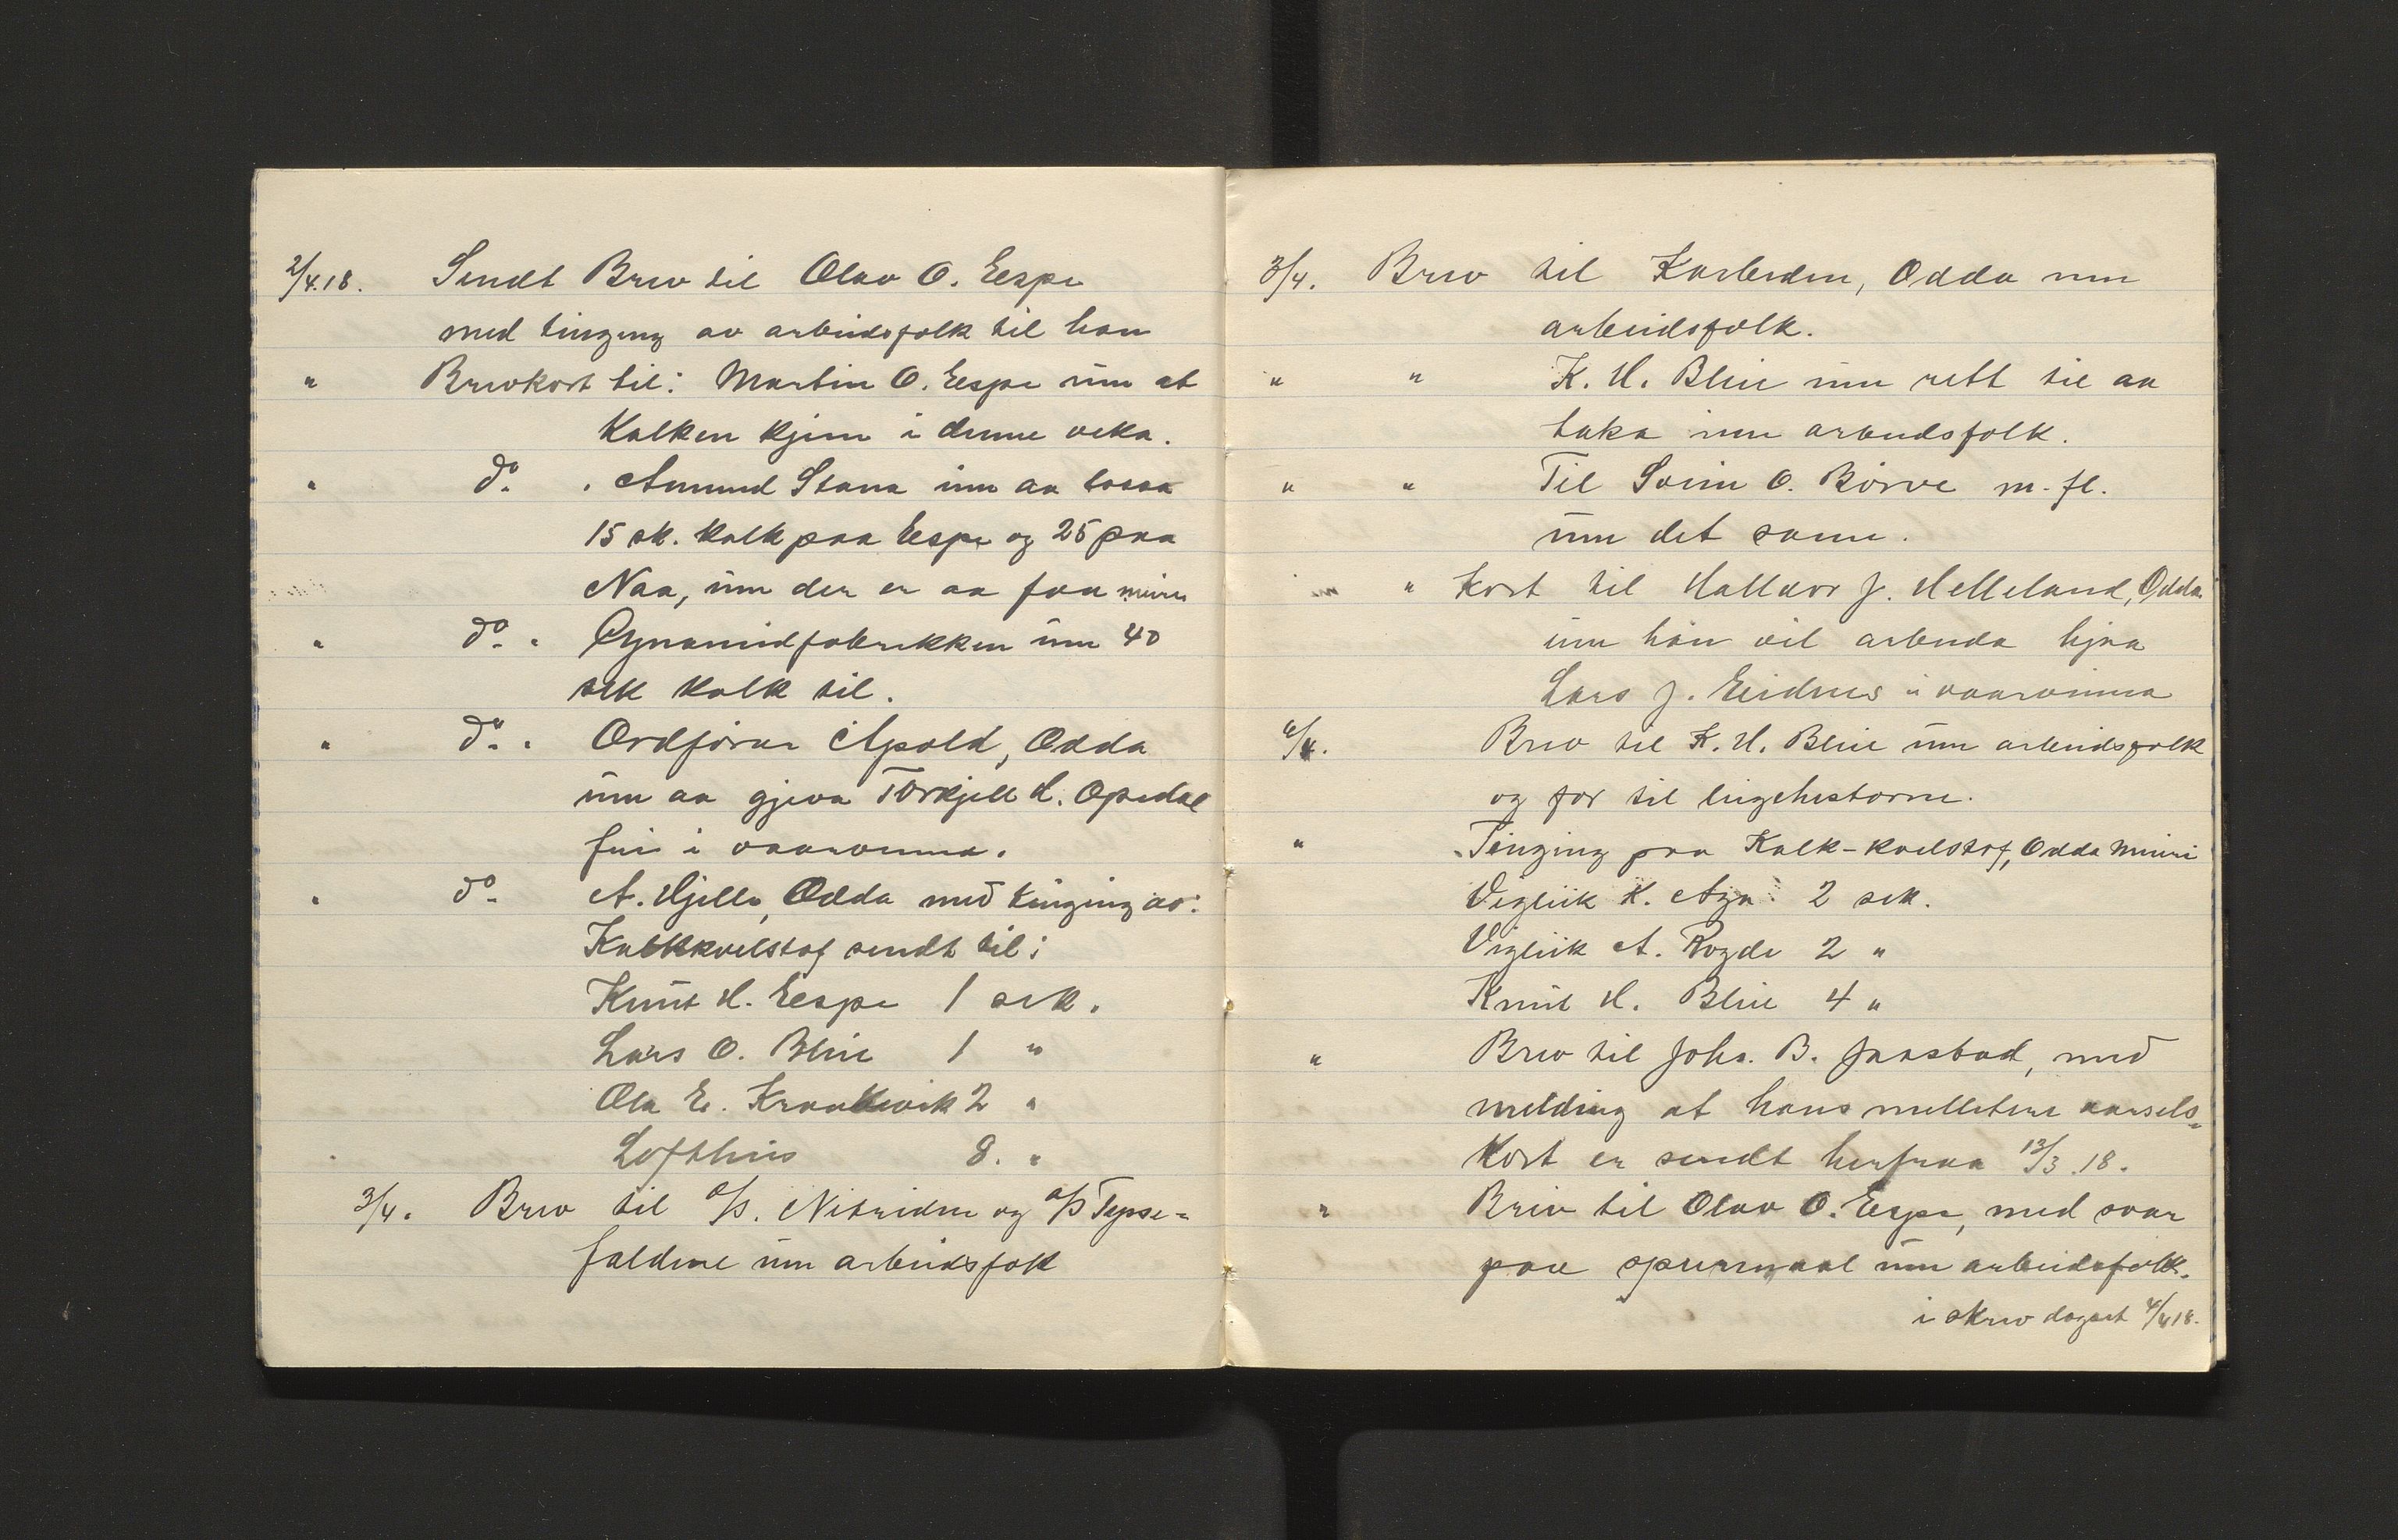 2/4.18. Sendt Brev til Olav O. Eespe
med tinging av arbeidsfolk til han
" Brevkort til: Martin O. Eespe um at
Kalken kjem i denne veka.
" do. " Amund Stana um aa lossa
15 sk. kalk paa Eespe og 25 paa
Naa, um der er aa faa meire
" do. " Cyanamidfabrikken um 40
sek kalk til.
" do. " Ordførar Apold, Odda
um aa gjeva Torkjell H. Opedal
fri i vaarvinna.
" do. A. Hjelle, Odda med tinging av:
Kalkkvelstof sendt til:
Knut H. Eespe 1 sek.
Lars O. Blie 1 "
Ola E. Kraakevik 2 "
Lofthus 8. "
3/4. Brev til A/S. Nitriden og A/S Tysse-
faldene um arbeidsfolk
3/4. Brev til Karbiden, Odda um
arbeidsfolk.
" " K. H. Blie um rett til aa
taka inn arbeidsfolk.
" " Til Svein O. Börve m. fl.
um det same.
" " Kort til Halldor J. Helleland, Odda
um han vil arbeida hjaa
Lars J. Eidnes i vaarvinna
6/4. Brev til K. H. Blie um arbeidsfolk
og for til leigehestarne.
" Tinging paa Kalk-kvelstof, Odda
Vigleik K. Aga 2 sek.
Vigleik A. Rogde 2 "
Knut H. Blie 4 "
" Brev til Johs. B. Jaastad, med
melding at hans aarsels-
Kort er sendt herfraa 13/3.18.
" Brev til Olav O. Eespe, med svar
paa spursmaal um arbeidsfolk.
i skriv dagsett 4/4 18.